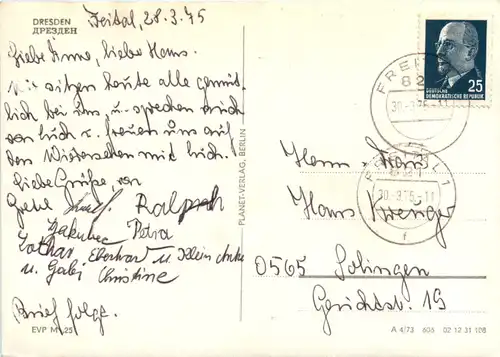 DRESDEN
ДРЕЗДЕН
Freital, 28.3.75
Liebe Änne, lieber Hans.
Wir sitzen heute alle gemüt-
lich bei uns u. sprechen auch
von Euch u. freuen uns auf
das Wiedersehen mit Euch.
Liebe Grüße, von
Grete Ralph
Petra
Lothar Eberhard u. Klein Anke
u. Gabi Christine
Brief folgt.
EVP M -,25
PLANET-VERLAG, BERLIN
FREITAL
821
30.-3.75-11
25
DEUTSCHE
DEMOKRATISCHE REPUBLIK
FREITAL 1
821
30.-3.75-11
f
Herrn + Frau
Hans Krenger
0565 Solingen
Gerichtstr. 19
A 4/73 606 02 12 31 108